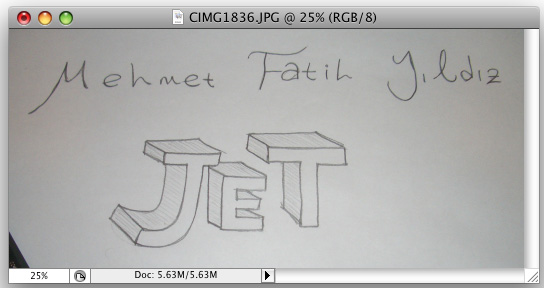 CIMG1836.JPG @ 25% (RGB/8)
Mehmet Fatih Yıldız
JET
25% Doc: 5.63M/5.63M